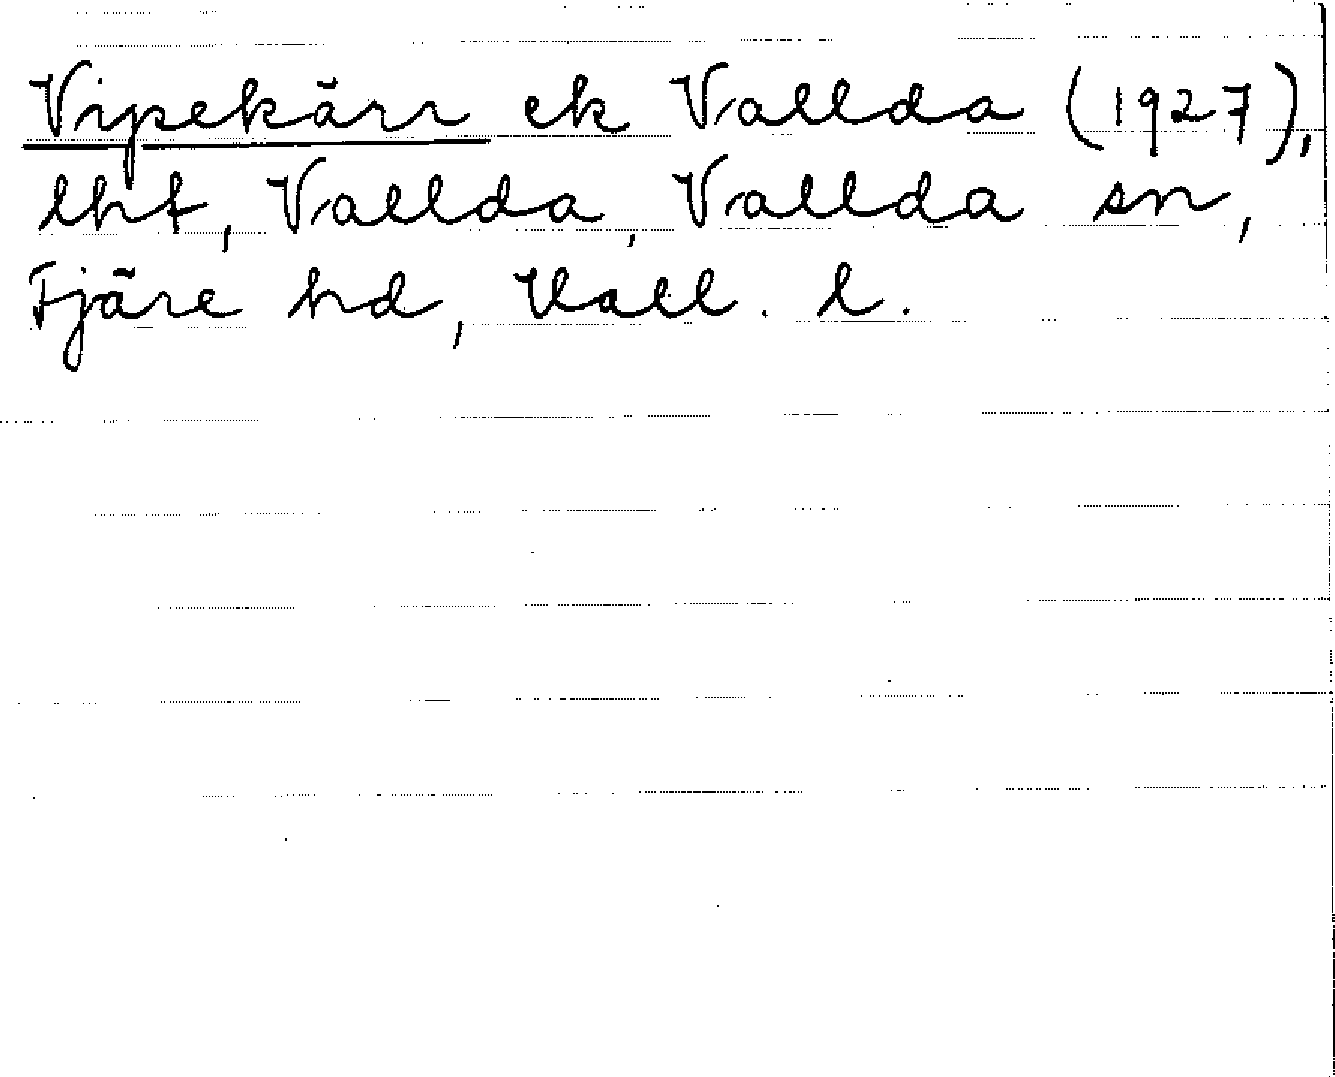 Vipekärr ek Vallda (1927),
lht, Vallda, Vallda sn,
Fjäre hd, Hall. l.